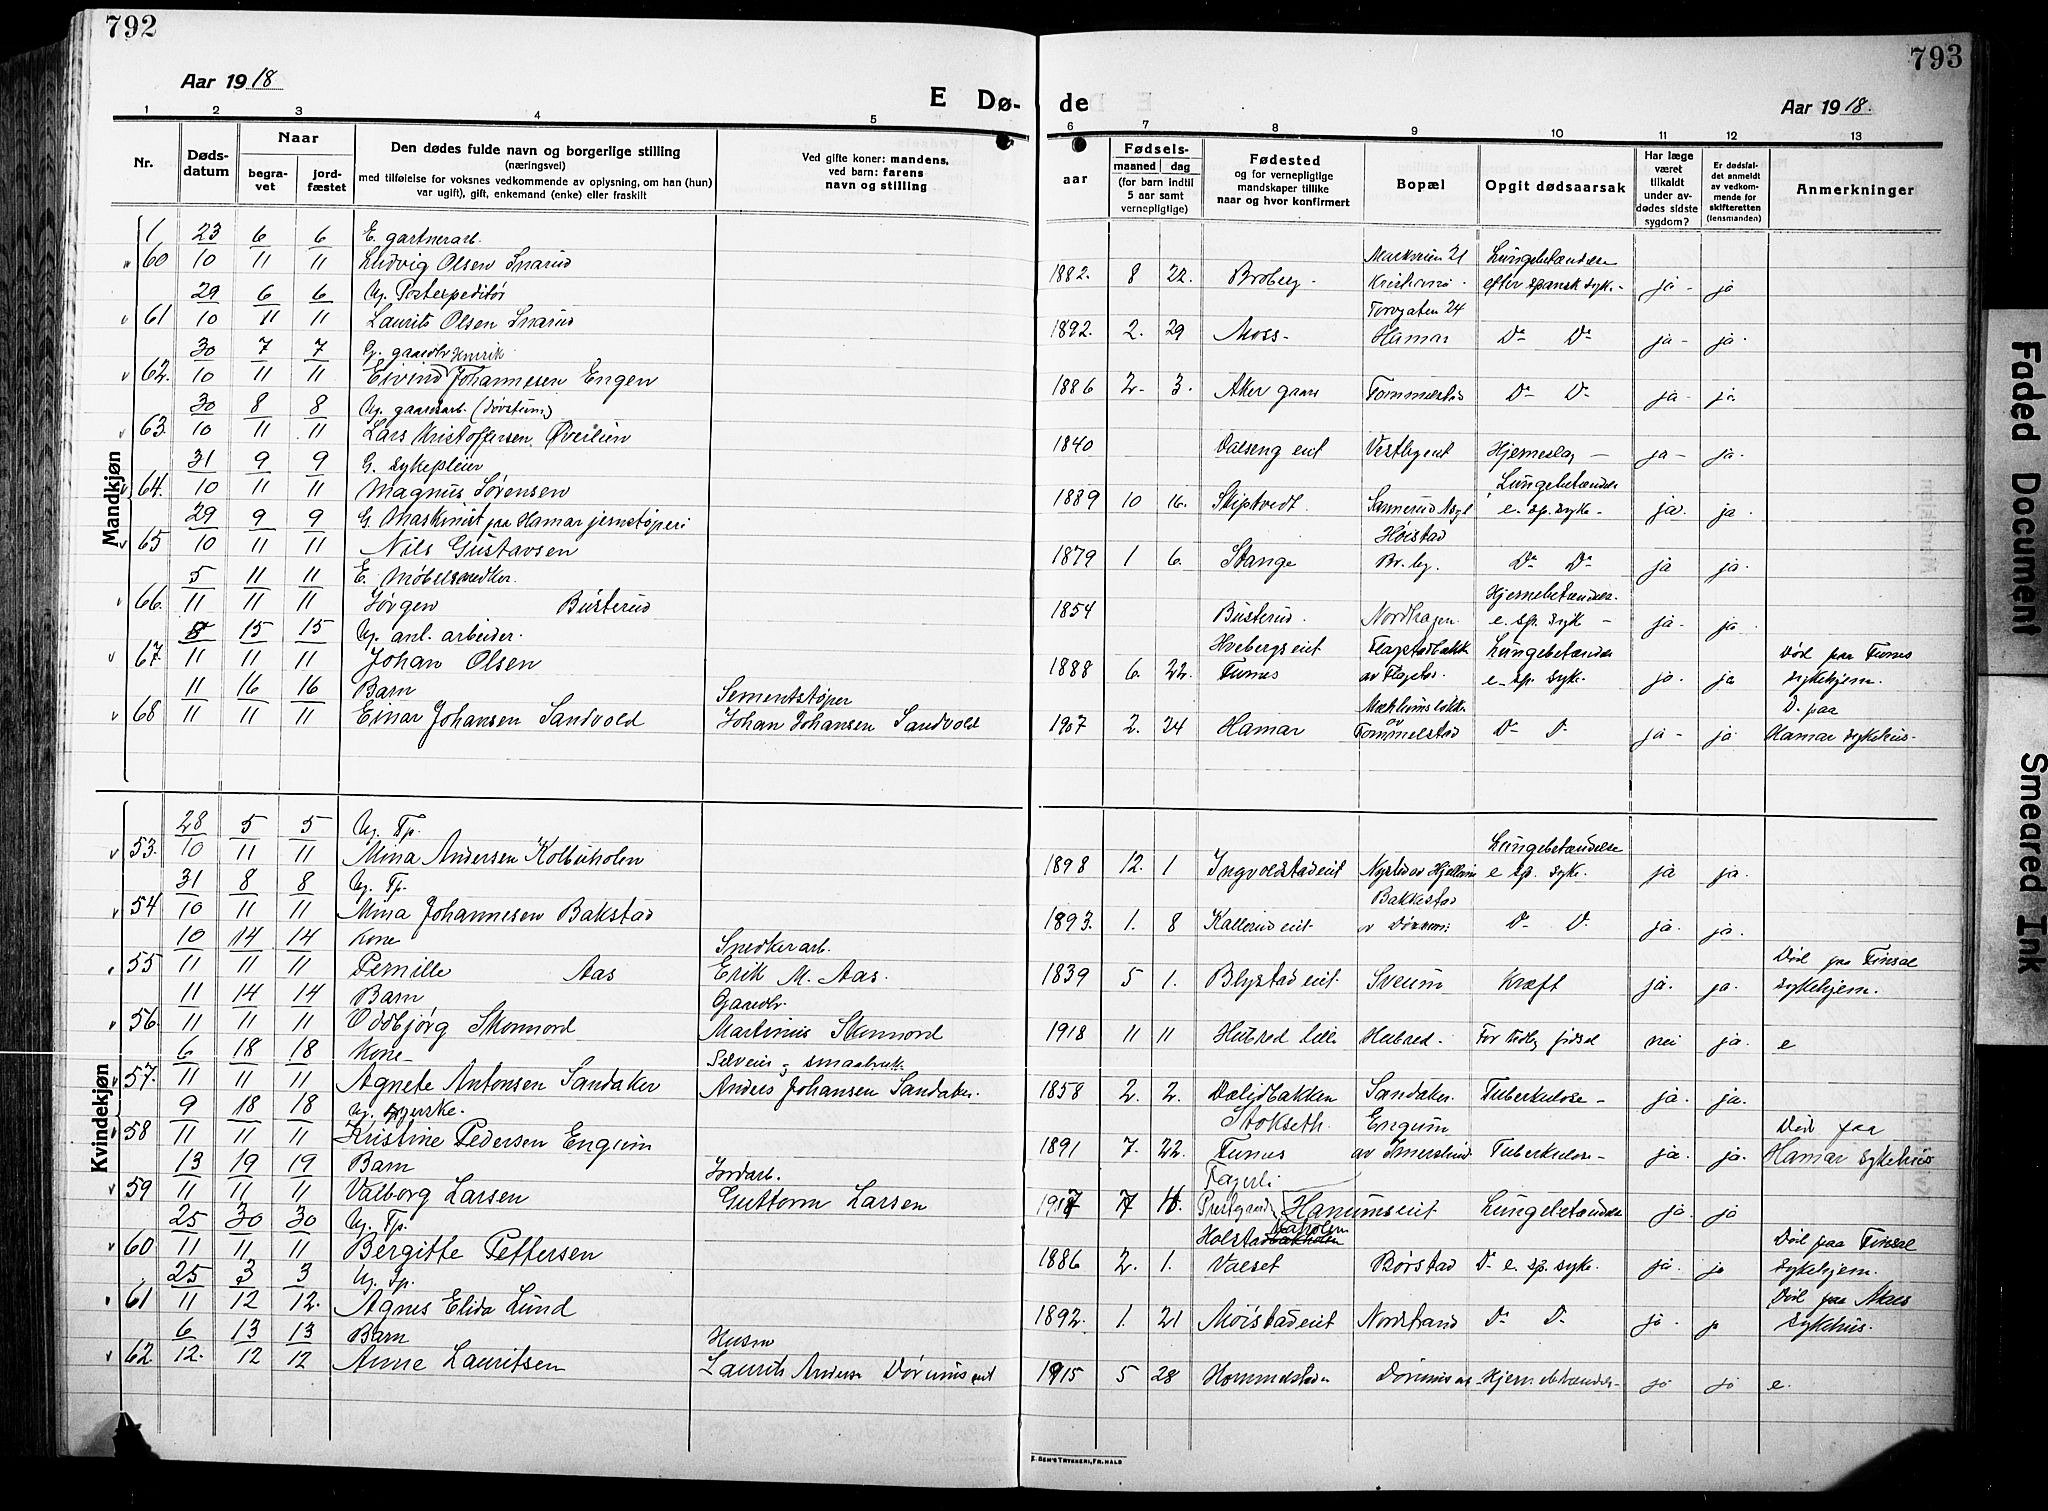 792
793
Aar 1918
E Dø-
de
Aar 1918.
1 2 3 4 5 6 7 8 9 10 11 12 13
Nr.
Døds-
datum
Naar
begra-
vet
jord-
fæstet
Den dødes fulde navn og borgerlige stilling
(næringsvei)
med tilføielse for voksnes vedkommende av oplysning, om han (hun)
var ugift), gift, enkemand (enke) eller fraskilt
Ved gifte koner: mandens,
ved barn: farens
navn og stilling
aar
Fødsels-
maaned dag
(for barn indtil
5 aar samt
vernepligtige)
Fødested
og for vernepligtige
mandskaper tillike
naar og hvor konfirmert
Bopæl
Opgit dødsaarsak
Har læge
været
tilkaldt
under av-
dødes sidste
sygdom?
Er dødsfal-
det anmeldt
av vedkom-
mende for
skifteretten
(lensmanden)
Anmerkninger
Mandkjøn
1 23 6 6 E. gartnerarb. Lungebetændelse
60 10 11 11 Ludvig Olsen Snarud 1882. 8 22. Broberg - efter spansk syke - ja - ja
29 6 6 Ug. Postexpeditør Torvgaten 24
61 10 11 11 Laurits Olsen Snarud 1892. 2. 29 Moss - Hamar Do Do ja - ja.
30 7 7 G. gaardbr Henrik
62. 10 11 11 Eivind Johannesen Engen 1886 2. 3. Aker gaard Tommelstad Do Do ja - ja
30 8 8 Ug. gaardsarb. (Dørstum)
63. 10 11 11 Lars Kristoffersen Øverlien 1840 Valseng eit Vestbyeit Hjerneslag - ja - ja.
31 9 9 G. sykepleier Lungebetændelse
64. 10 11 11 Magnus Sørensen 1889 10 16. Skiptvedt. Sannerud Asyl e. sp. syke - ja. ja
29 9 9 G. Maskinist paa Hamar jernstøperi Høistad
65 10 11 11 Nils Gustavsen 1879 1 6. Stange Br. by. Do Do ja ja.
5 11 11 E. Møbelsnedker. Hjernebetændelse
66. 11 11 11 Jørgen Busterud 1854 Busterud. Nordhagen. e. sp. syk - ja. ja
8 15 15 Ug. anl. arbeider. Hvebergseit Flagstadbakk Lungebetændelse Død paa Furnes
67. 11 11 11 Johan Olsen 1888 6. 22. Furnes av Flagstad e. sp. syke. ja. ja sykehjem.
11 16 16 Barn Sementstøper Mæhlumsløkke D. paa
68 11 11 11 Einar Johansen Sandvold Johan Johansen Sandvold 1907 2. 24 Hamar av Tommelstad Do Do ja - ja Hamar sykehus -
Kvindekjøn
28 5 5 Ug. Tp. Lungebetændelse
53. 10 11 11 Mina Andersen Kolbuholen 1898 12. 1 Ingvoldstadeit Nystad av Hjellum e sp. syke. ja ja.
31 8 8 Ug. Tp. Bakkestad
54 10 11 11 Mina Johannesen Bakstad 1893. 1. 8 Kallerud eit - av Dørum Do Do ja. ja.
10 14 14 Kone Snedkerarb. Død paa Finsal
55 11 11 11 Pernille Aas Erik M. Aas. 1839 5 1. Blystad eit. Sveum Kræft ja. ja. sykehjem.
11 14 14 Barn Gaardbr.
56. 11 11 11 Oddbjørg Skonnord Martinius Skonnord 1918 11 11 Hubred lille Hubred - For tidlig fødsel nei ja. e
6 18 18 Kone - Selveier og smaabruk.
57. 11 11 11 Agnete Antonsen Sandaker Anders Johansen Sandaker. 1858 2. 2. Dælidbakken Sandaker. Tuberkulose - ja. ja.
9 18 18 Ug. syerske. Stokseth. Engum Død paa
58 11 11 11 Kristine Pedersen Engum 1891 7. 22. Furnes av Imerslund Tuberkulose - ja. ja. Hamar sykehus
13 19 19 Barn Jordarb. Fagerli
59 11 11 11 Valborg Larsen Guttorm Larsen 1917 7 11. Prestgaard Hanumseit Lungebetændelse ja. ja
25 30 30 Ug. Tp. Død paa Finsal
60 11 11 11 Bergitte Pettersen 1886 2. 1. Valset Børstad Do e. sp. syke. ja. ja sykehjem.
25 3 3 Ug. Tp. Død paa Akers
61 11 12 12. Agnes Elida Lund 1892. 1. 21 Moistadeit Nordstrand Do Do ja. ja sykehus.
6 13 13 Barn Husm
62. 12. 12 12 Anne Lauritsen Laurits Anders Dørumseit 1915 5 28 Hommelstad Hjernebetændelse ja ja e.
E. SEM'S TRYKKERI, FR. HALD
Faded Document
Smeared Ink